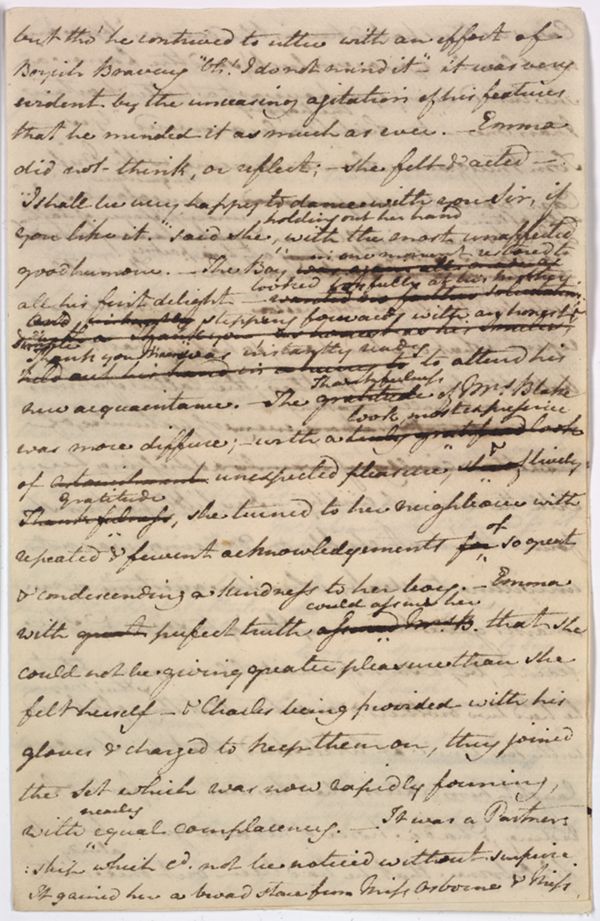 but tho' he contrived to utter with an effort of
Boyish Bravery "Oh! I do not mind it" it was very
evident by the unceasing agitation of his features
that he minded it as much as ever. — Emma
did not think, or reflect; — she felt & acted —.
"I shall be very happy to dance with you Sir, if
holding out her hand
you like it." said she, with the most unaffected
in one moment restored to
goodhumour. — The Boy was again all
looked joyfully at
all his first delight —
and stepping forwards with an honest &
simple Thank you
Thank you Ma'am was instantly ready
held out his hand in to to attend his
Thankfulness
new acquaintance. — The gratitude of Mrs. Blake
look most expressive
was more diffuse; — with a truly gratified look
of astonishment unexpected pleasure, & lively
gratitude
Thankfulness, she turned to her neighbour with
of
repeated & fervent acknowledgements for so great
& condescending a kindness to her boy. — Emma
could assure her
with great perfect truth assured Mrs. B. that she
could not be giving greater pleasure than she
felt herself — & Charles being provided with his
gloves & charged to keep them on, they joined
the Set which was now rapidly forming,
nearly
with equal complacency. — It was a Partner:
:ship which cd. not be noticed without surprise.
It gained her a broad stare from Miss Osborne & Miss